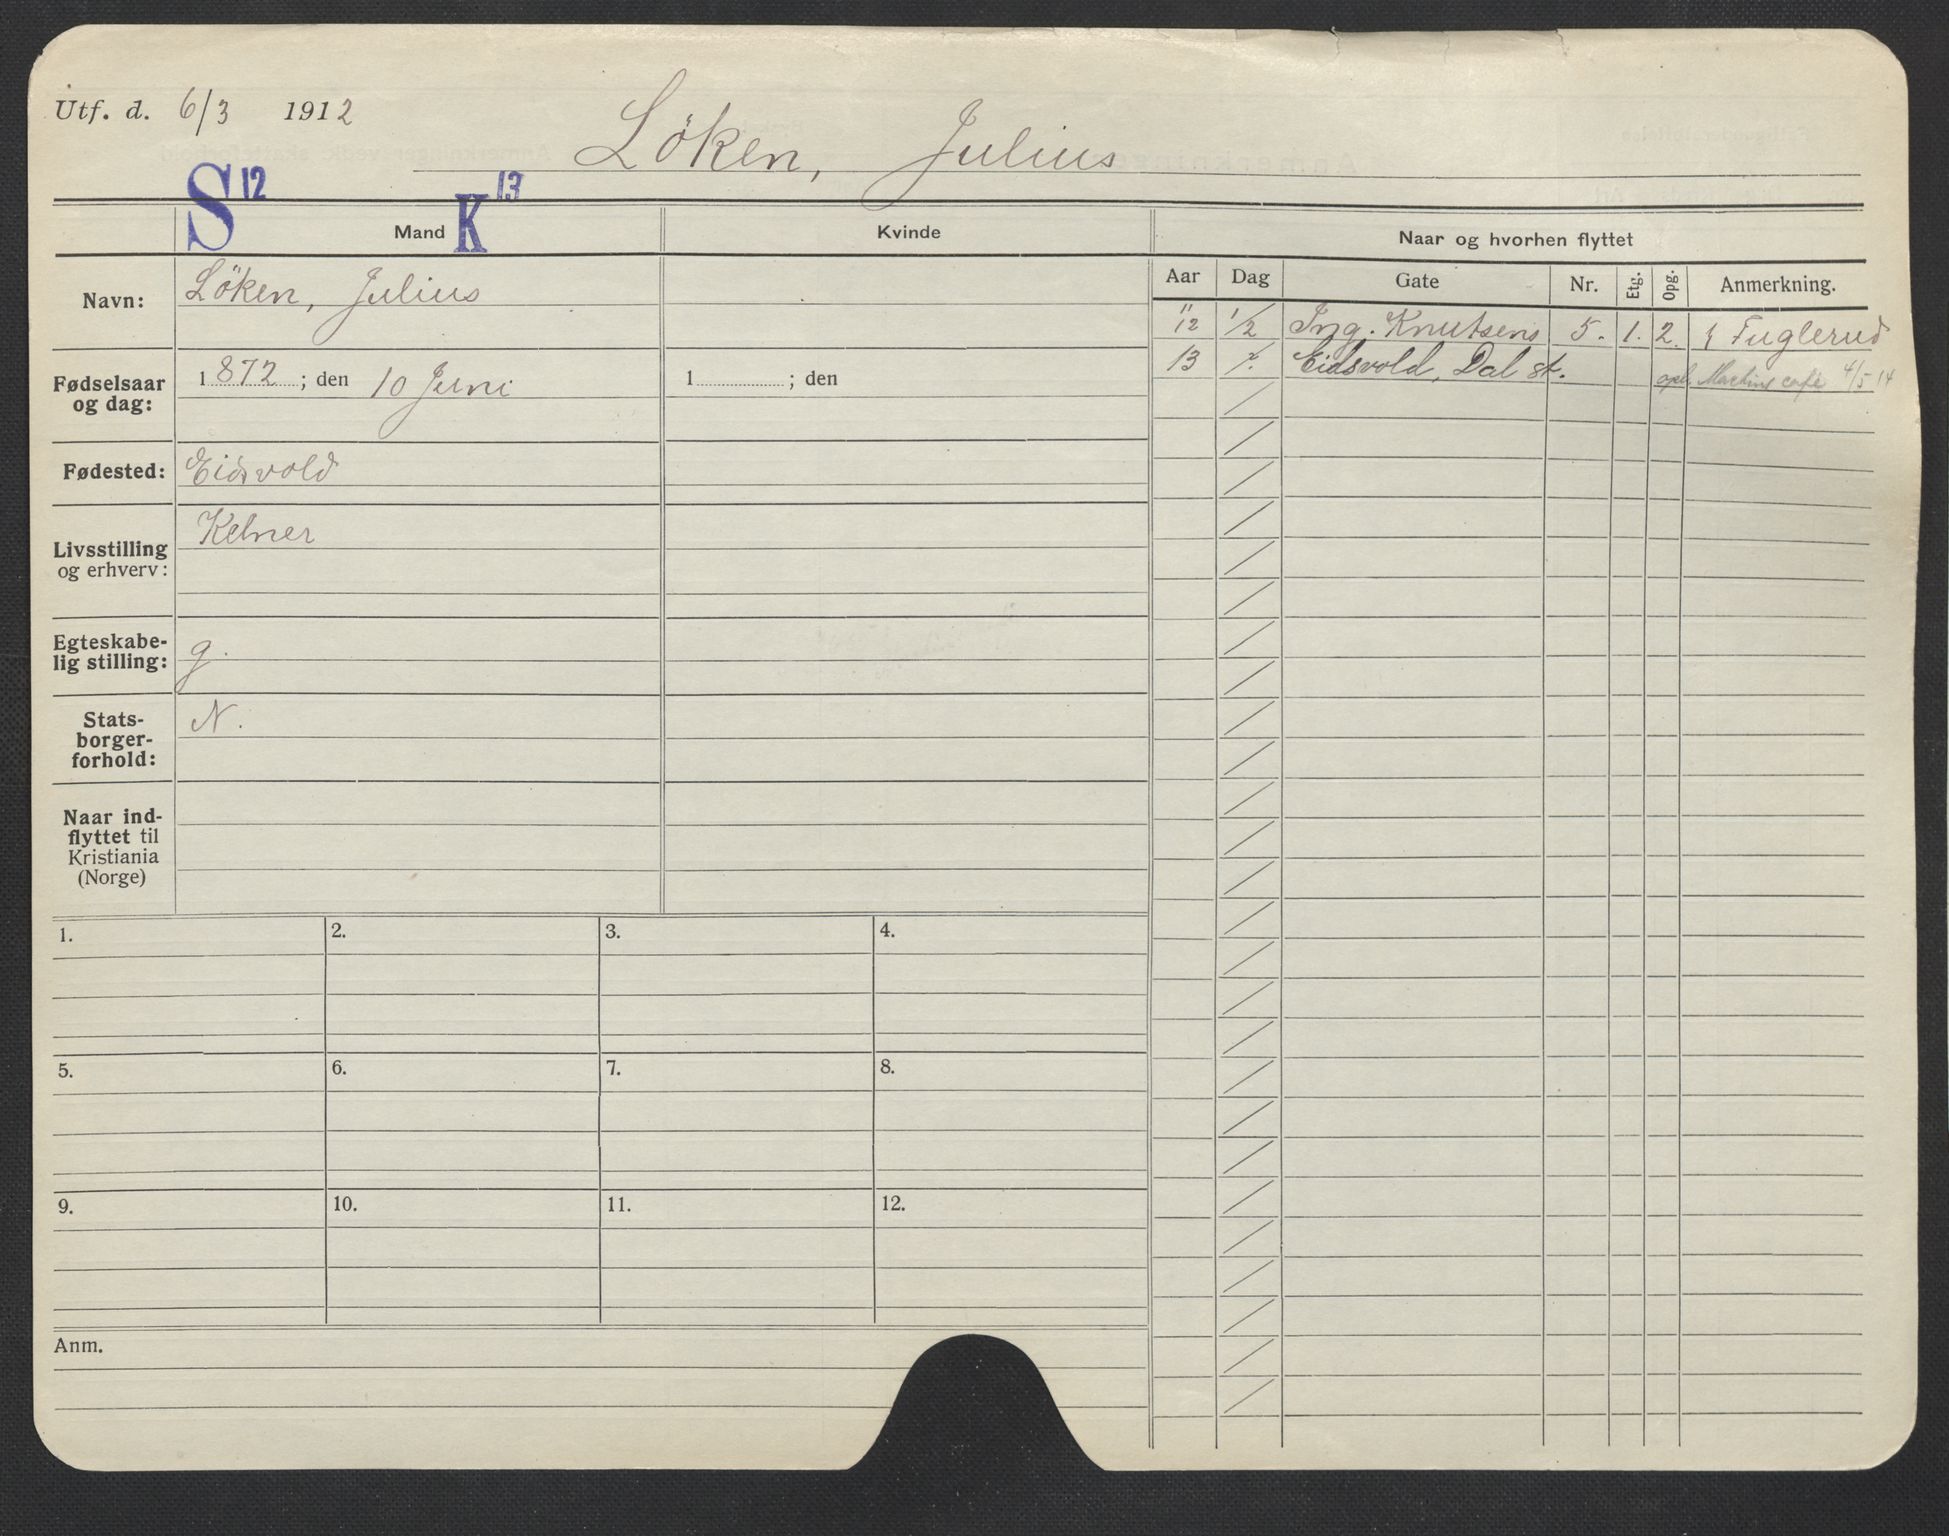 Utf. d. 6/3 1912
Löken, Julius
S 12 K 13
Mand Kvinde Naar og hvorhen flyttet
Aar Dag Gate Nr. Etg. Opg. Anmerkning.
Navn: Löken, Julius
Fødselsaar og dag: 1872; den 10 Juni 1 ; den
Fødested: Eidsvold
Livsstilling og erhverv: Kelner
Egteskabe-
lig stilling: g.
Stats-
borger-
forhold: N.
Naar ind-
flyttet til
Kristiania
(Norge)
" 12 1/2 Ing. Knutsens 5. 1. 2. Fuglerud
13 Eidsvold, Dal st. opl. café 4/5 14
1. 2. 3. 4.
5. 6. 7. 8.
9. 10. 11. 12.
Anm.